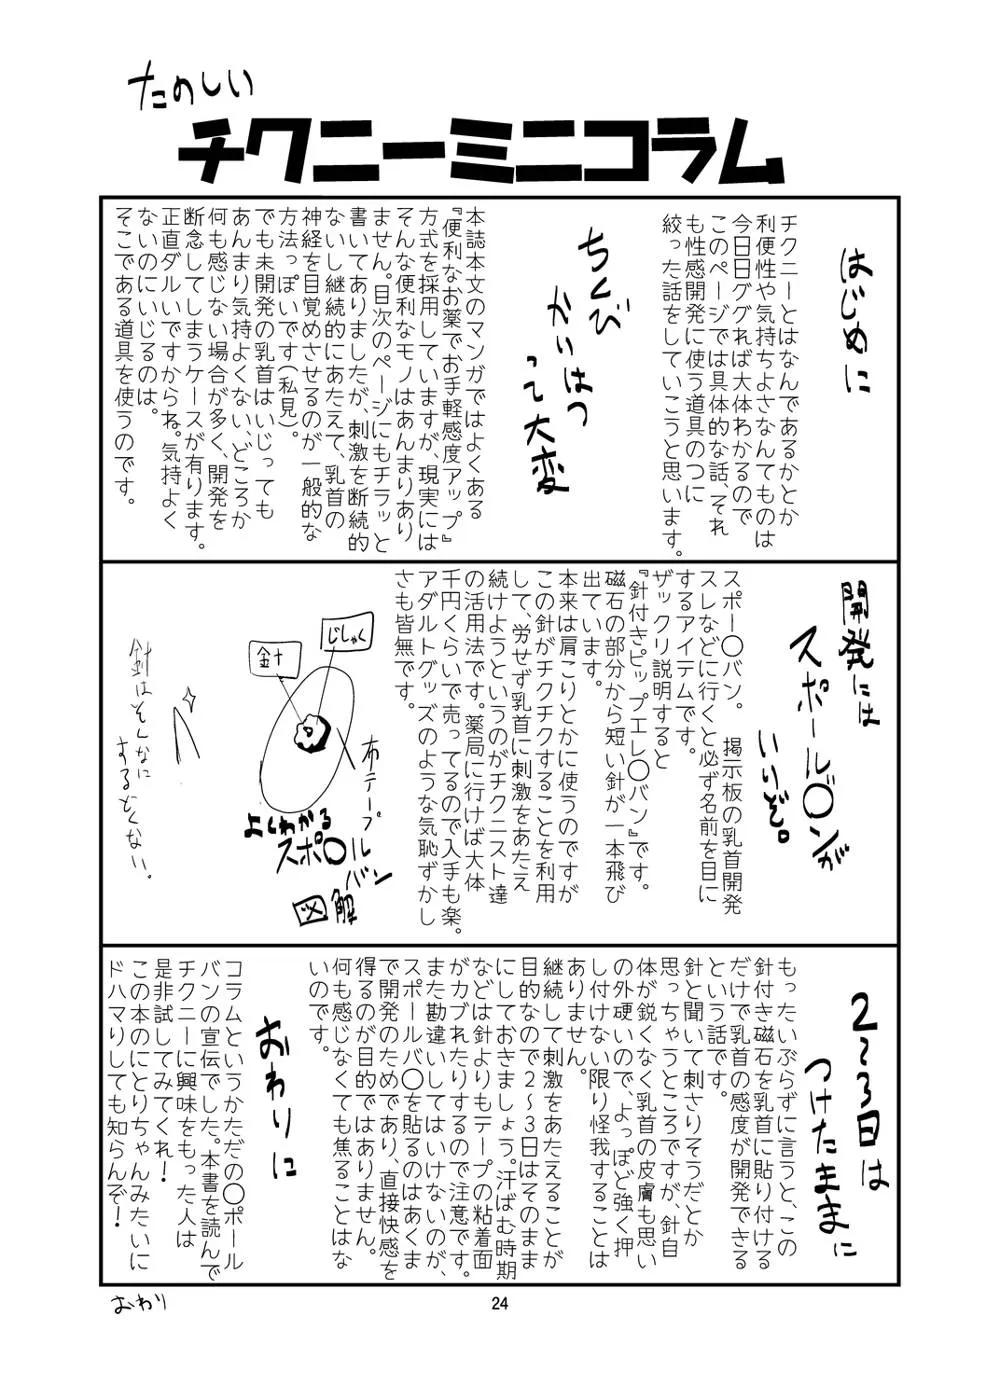 たのしい
チクニーミニコラム
はじめに
チクニーとはなんであるかとか
利便性や気持ちよさなんてものは
今日日ググれば大体わかるので
このページでは具体的な話、それ
も性感開発に使う道具のつに
絞った話をしていこうと思います。
ちくび
かいはつ
って大変
本誌本文のマンガではよくある
『便利なお薬でお手軽感度アップ』
方式を採用していますが、現実には
そんな便利なモノはあんまりあり
ません。目次のページにもチラッと
書いてありましたが、刺激を断続的
ないし継続的にあたえて、乳首の
神経を目覚めさせるのが一般的な
方法っぽいです(私見)。
でも未開発の乳首はいじっても
あんまり気持よくない、どころか
何も感じない場合が多く、開発を
断念してしまうケースが有ります。
正直ダルいですからね。気持よく
ないのにいじるのは。
そこである道具を使うのです。
開発には
スポール〇ンが
いいぞ。
スポー〇バン。 掲示板の乳首開発
スレなどに行くと必ず名前を目に
するアイテムです。
ザックリ説明すると
『針付きピップエレ〇バン』です。
磁石の部分から短い針が一本飛び
出ています。
本来は肩こりとかに使うのですが
この針がチクチクすることを利用
して、労せず乳首に刺激をあたえ
続けようというのがチクニスト達
の活用法です。薬局に行けば大体
千円くらいで売ってるので入手も楽。
アダルトグッズのような気恥ずかし
さも皆無です。
じしゃく
針
布テープ
よくわかる
スポ〇ル
バン
図解
針はそんなに
するどくない。
2~3日は
つけたままに
もったいぶらずに言うと、この
針付き磁石を乳首に貼り付ける
だけで乳首の感度が開発できる
という話です。
針と聞いて刺さりそうだとか
思っちゃうところですが、針自
体が鋭くなく乳首の皮膚も思い
の外硬いので、よっぽど強く押
し付けない限り怪我することは
ありません。
継続して刺激をあたえることが
目的なので2~3日はそのまま
にしておきましょう。汗ばむ時期
などは針よりもテープの粘着面
がカブれたりするので注意です。
また勘違いしてはいけないのが、
スポールバ〇を貼るのはあくま
で開発のためであり、直接快感を
得るのが目的ではありません。
何も感じなくても焦ることはな
いのです。
おわりに
コラムというかただの〇ポール
バンの宣伝でした。本書を読んで
チクニーに興味をもった人は
是非試してみてくれ！
この本のにとりちゃんみたいに
ドハマりしても知らんぞ！
おわり
24